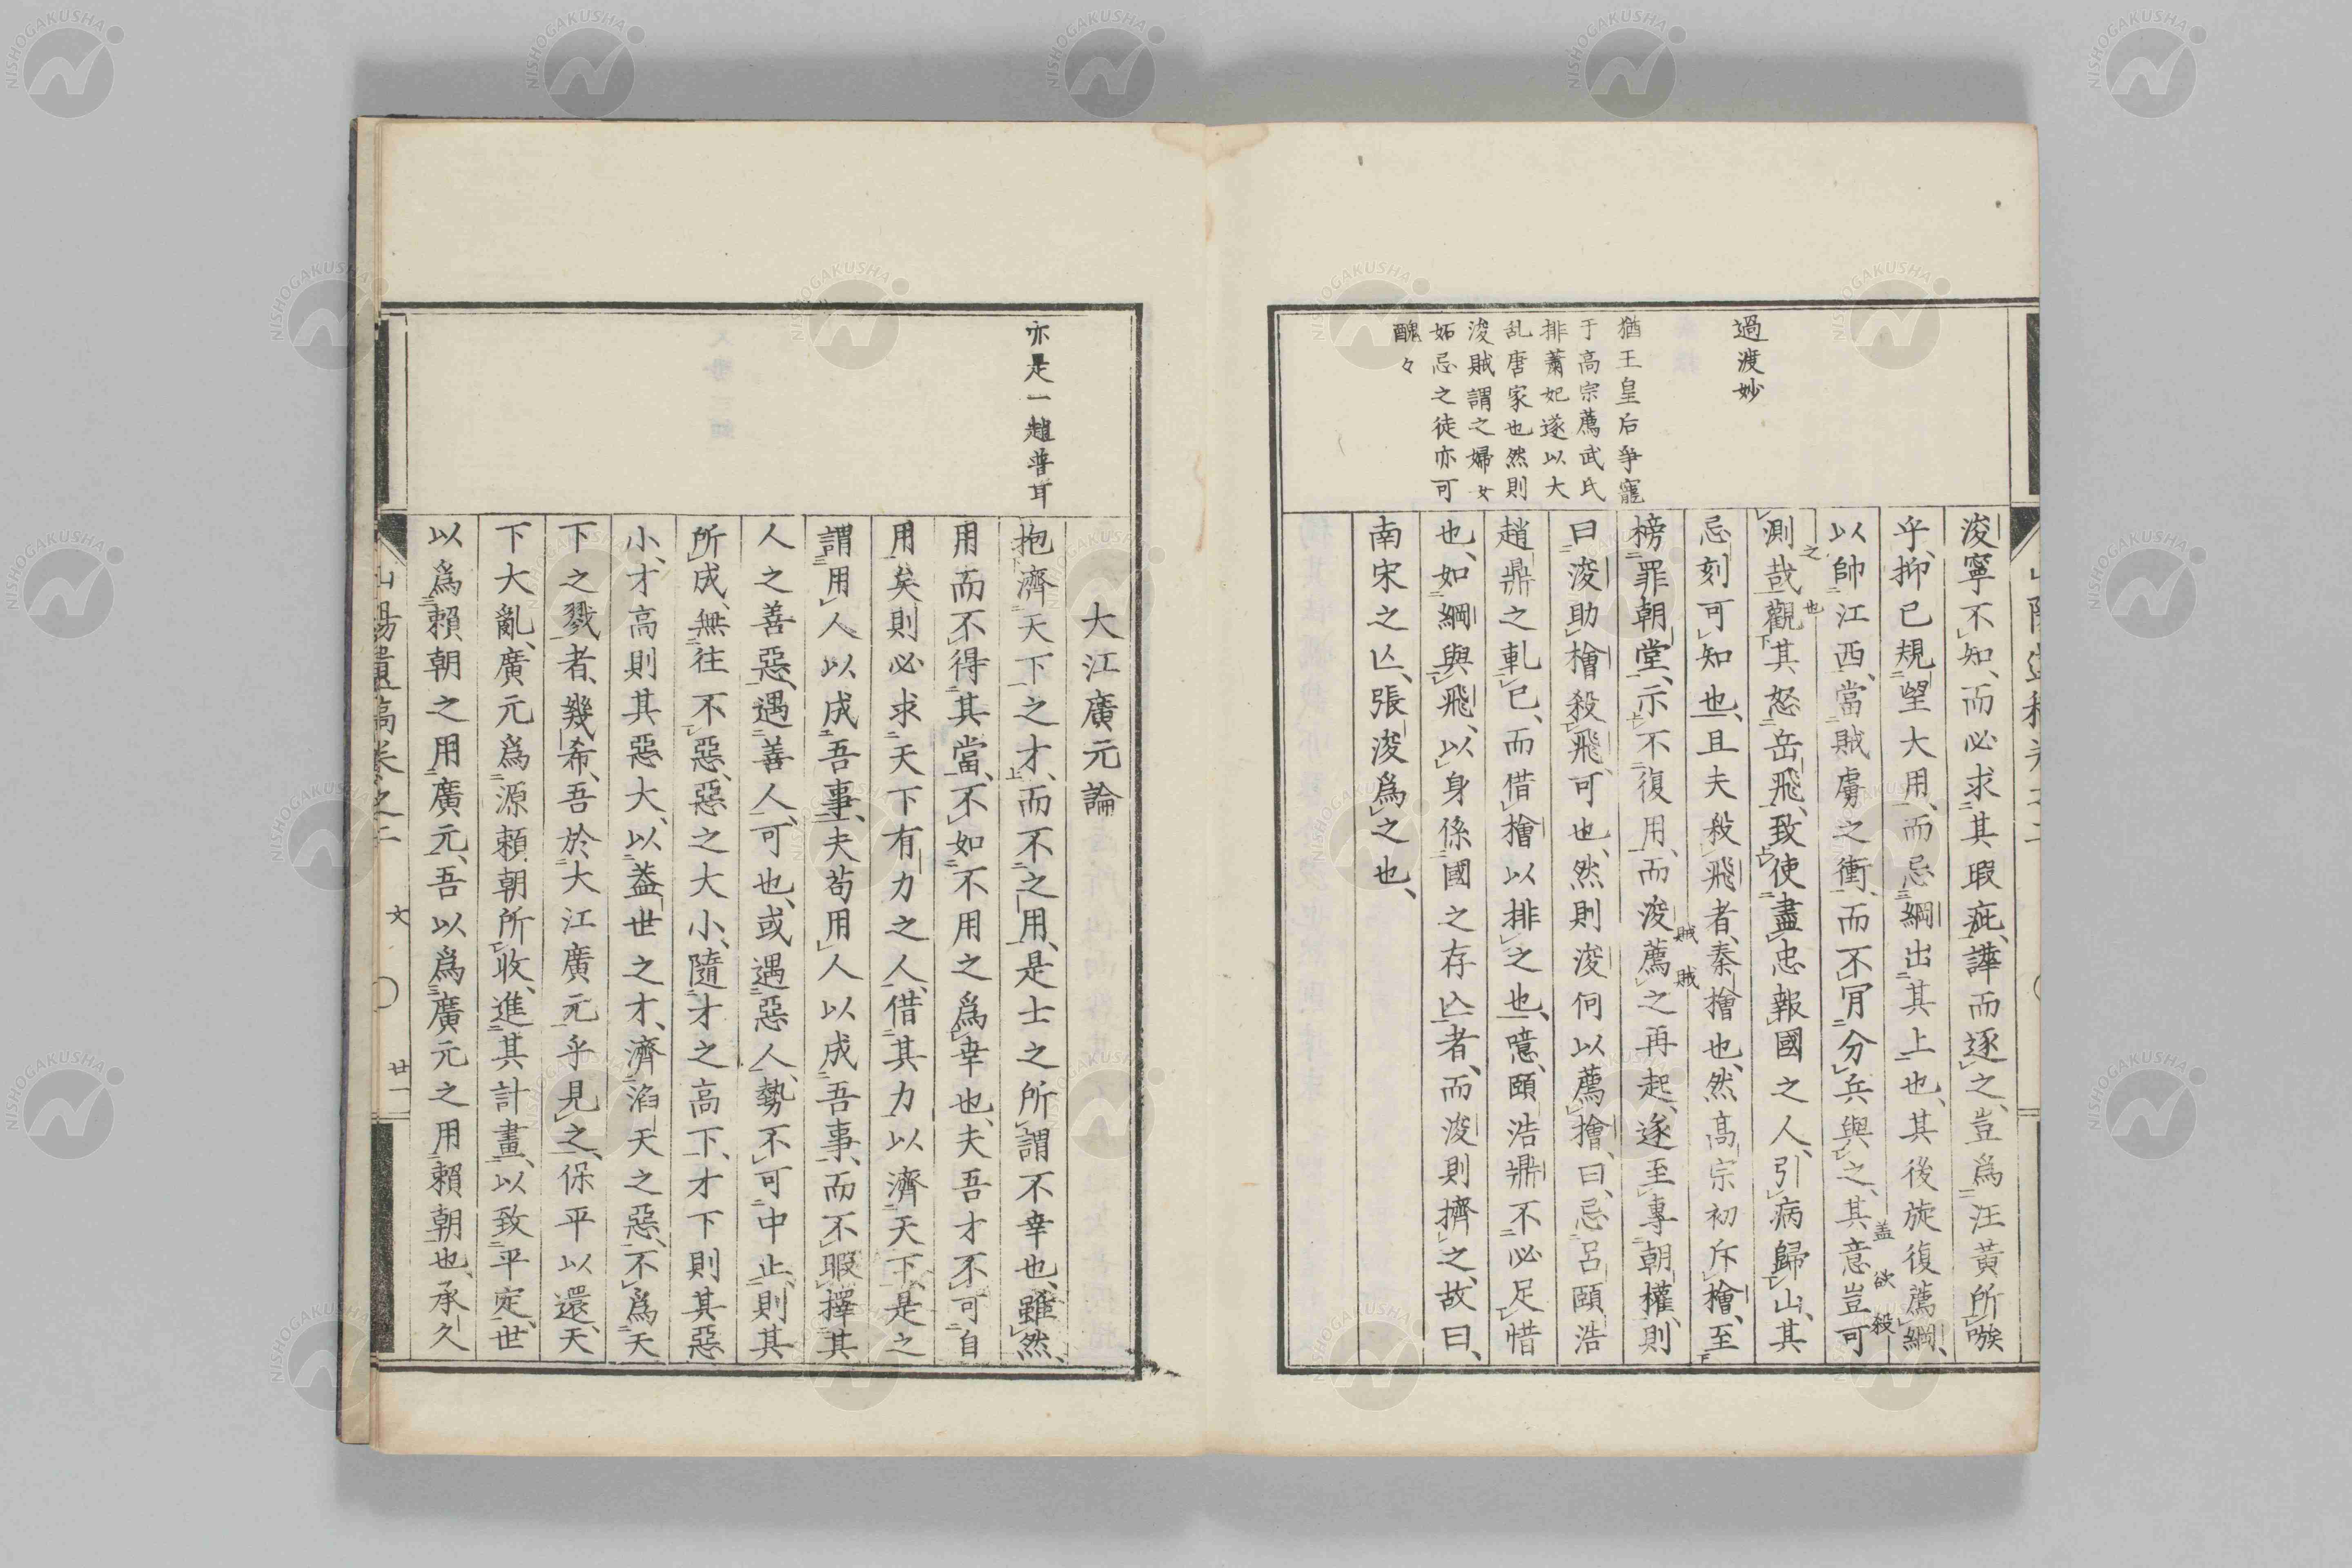 過渡妙
猶王皇后爭寵
于高宗薦武氏
排蕭妃遂以大
乱唐家也然則
浚賊謂之婦女
妬忌之徒亦可
醜々
浚寧不知、而必求其瑕疵、譁而逐之、豈爲汪黃所嗾
乎、抑已規望大用、而忌綱出其上也、其後旋復薦綱、
以帥江西、當賊虜之衝、而不肎分兵與之、其意豈可
蓋欲殺
測哉、觀其怒岳飛、致使盡忠報國之人、引病歸山、其
之也
忌刻可知也、且夫殺飛者、秦檜也、然高宗初斥檜、至
榜罪朝堂、示不復用、而浚薦之再起、遂至專朝權、則
賊賊
曰浚助檜殺飛、可也、然則浚何以薦檜、曰、忌呂頤浩
趙鼎之軋己、而借檜以排之也、噫、頤浩鼎不必足惜
也、如綱與飛、以身係國之存亾者、而浚則擠之、故曰、
南宋之亾、張浚爲之也、
亦是一趙普耳
大江廣元論
抱濟天下之才、而不之用、是士之所謂不幸也、雖然、
用而不得其當、不如不用之爲幸也、夫吾才不可自
用矣則必求天下有力之人、借其力以濟天下、是之
謂用人以成吾事、夫苟用人以成吾事、而不暇擇其
人之善惡、遇善人、可也、或遇惡人、勢不可中止、則其
所成、無往不惡、惡之大小、隨才之高下、才下則其惡
小、才高則其惡大、以蓋世之才、濟滔天之惡、不爲天
下之戮者、幾希、吾於大江廣元乎見之、保平以還、天
下大亂、廣元爲源賴朝所收、進其計畫、以致平定、世
以爲賴朝之用廣元、吾以爲廣元之用賴朝也、承久
山陽遺稿卷之二　文　廿一